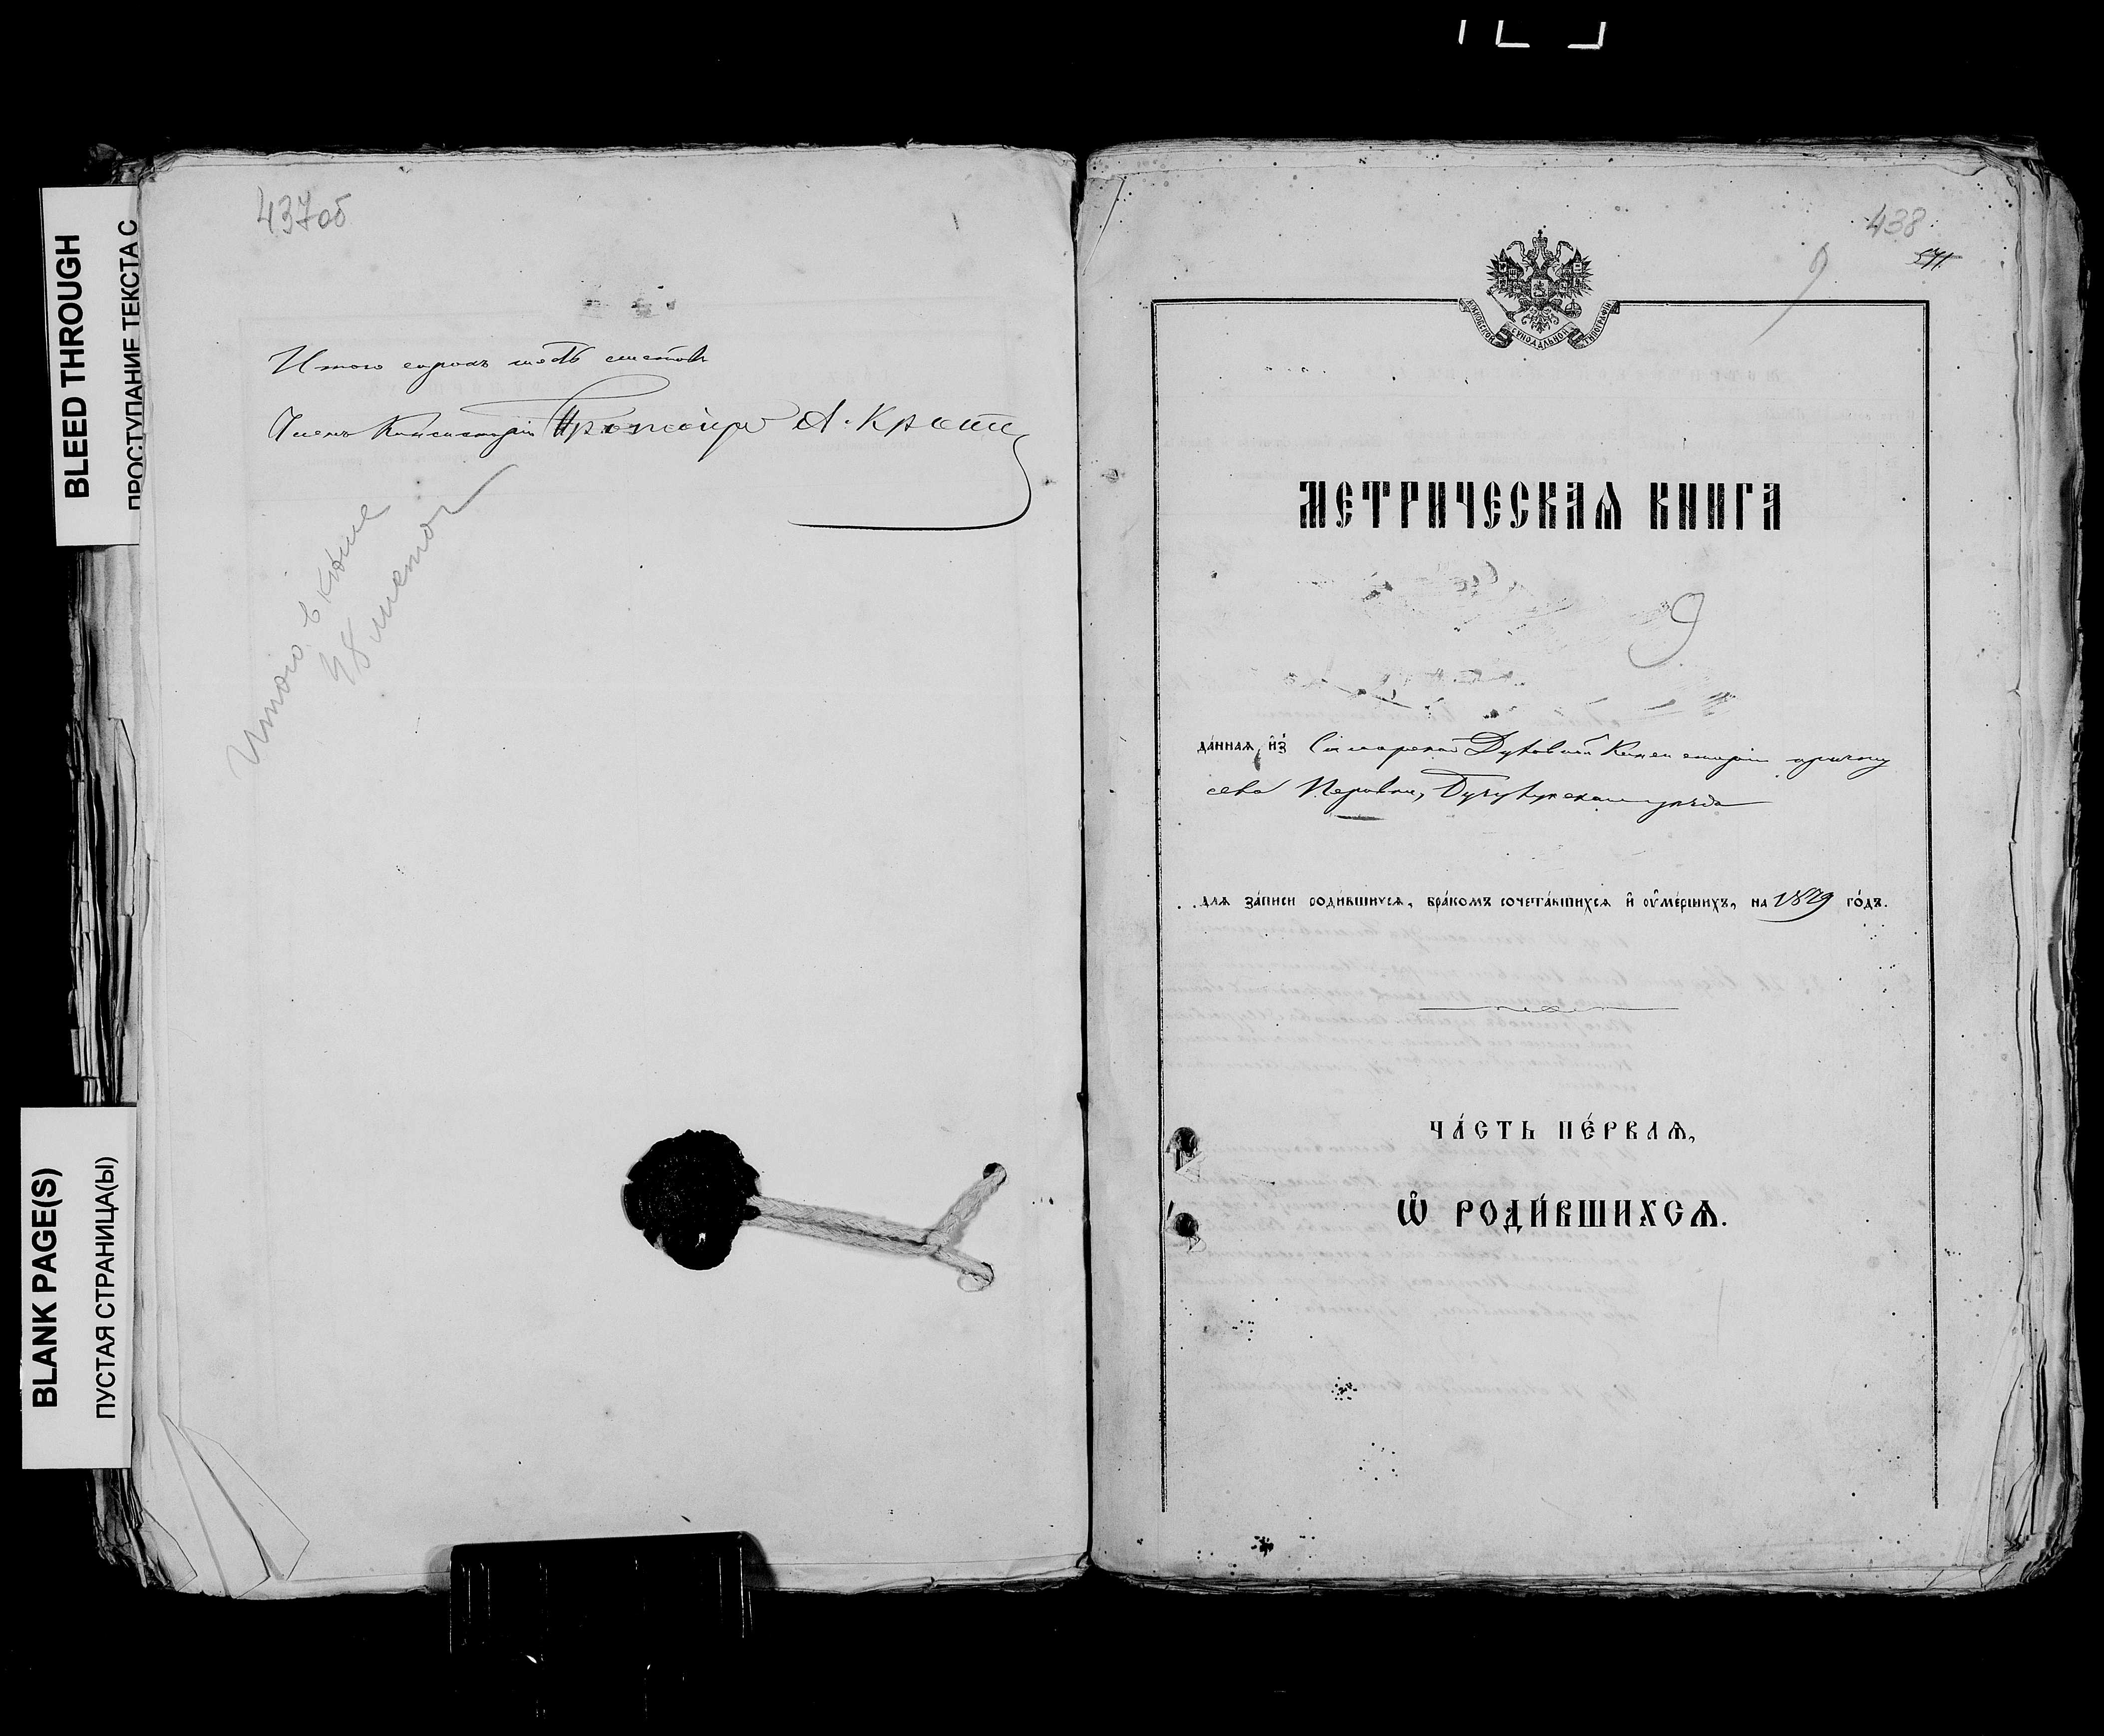 BLEED THROUGH
ПРОСТУПАНИЕ ТЕКСТА С
BLANK PAGE(S)
ПУСТАЯ СТРАНИЦА(Ы)
437об
Итого сорокъ шесть листовъ
Членъ Консисторіи Протоіерей А.
Итого в книге
48 листов
438
571
9
МОСКОВСКОЙ СѴНОДАЛЬНОЙ ТИПОГРАФІИ
МЕТРИЧЕСКАѦ КНИГА
9
да́ннаѧ и҆з̾ Самарской Духовной Консисторіи причту
села Перовки, Бузулукскаго уѣзда
длѧ за́писи роди́вшихсѧ, бра́комъ сочета́вшихсѧ и҆ ᲂу҆ме́ршихъ, на 1879 го́дъ.
ЧА́СТЬ ПЕ́РВАѦ,
Ѡ҆ РОДИ́ВШИХСѦ.